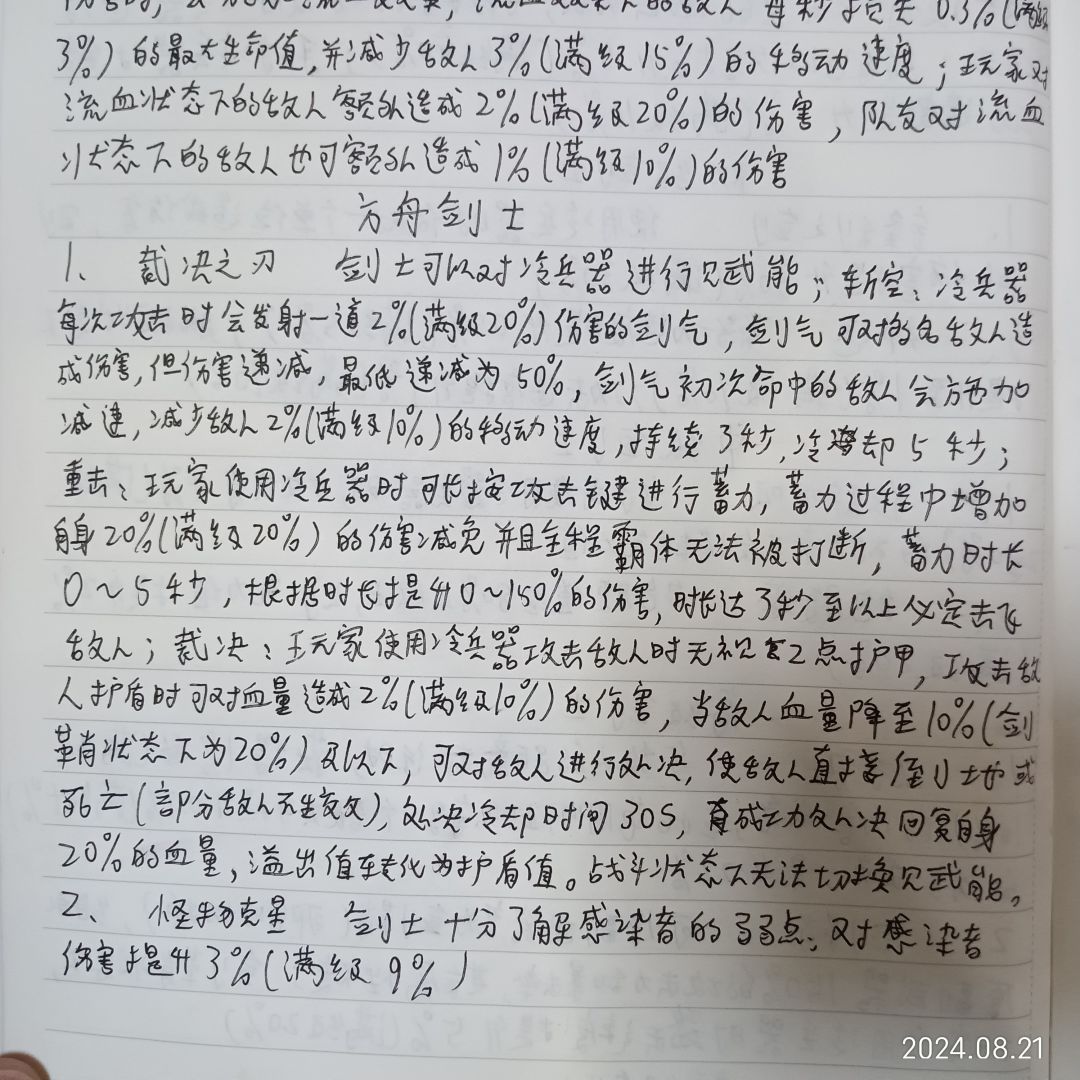 0.3%(满级
3%)的最大生命值,并减少敌人3%(满级15%)的移动速度;玩家对
流血状态下的敌人额外造成2%(满级20%)的伤害,队友对流血
状态下的敌人也可额外造成1%(满级10%)的伤害
方舟剑士
1、 裁决之刃 剑士可以对冷兵器进行见武能;斩空:冷兵器
每次攻击时会发射一道2%(满级20%)伤害的剑气,剑气可对多名敌人造
成伤害,但伤害递减,最低递减为50%,剑气初次命中的敌人会施加
减速,减少敌人2%(满级10%)的移动速度,持续3秒,冷却5秒;
重击:玩家使用冷兵器时可长按攻击键进行蓄力,蓄力过程中增加
自身20%(满级20%)的伤害减免并且全程霸体无法被打断,蓄力时长
0~5秒,根据时长提升0~150%的伤害,时长达3秒至以上必定击飞
敌人;裁决:玩家使用冷兵器攻击敌人时无视2点护甲,攻击敌
人护盾时可对血量造成2%(满级10%)的伤害,当敌人血量降至10%(剑
鞘状态下为20%)及以下,可对敌人进行处决,使敌人直接倒地或
死亡(部分敌人不生效),处决冷却时间30S,成功处决回复自身
20%的血量,溢出值转化为护盾值。战斗状态下无法切换见武能。
2、 怪物克星 剑士十分了解感染者的弱点;对感染者
伤害提升3%(满级9%)
2024.08.21